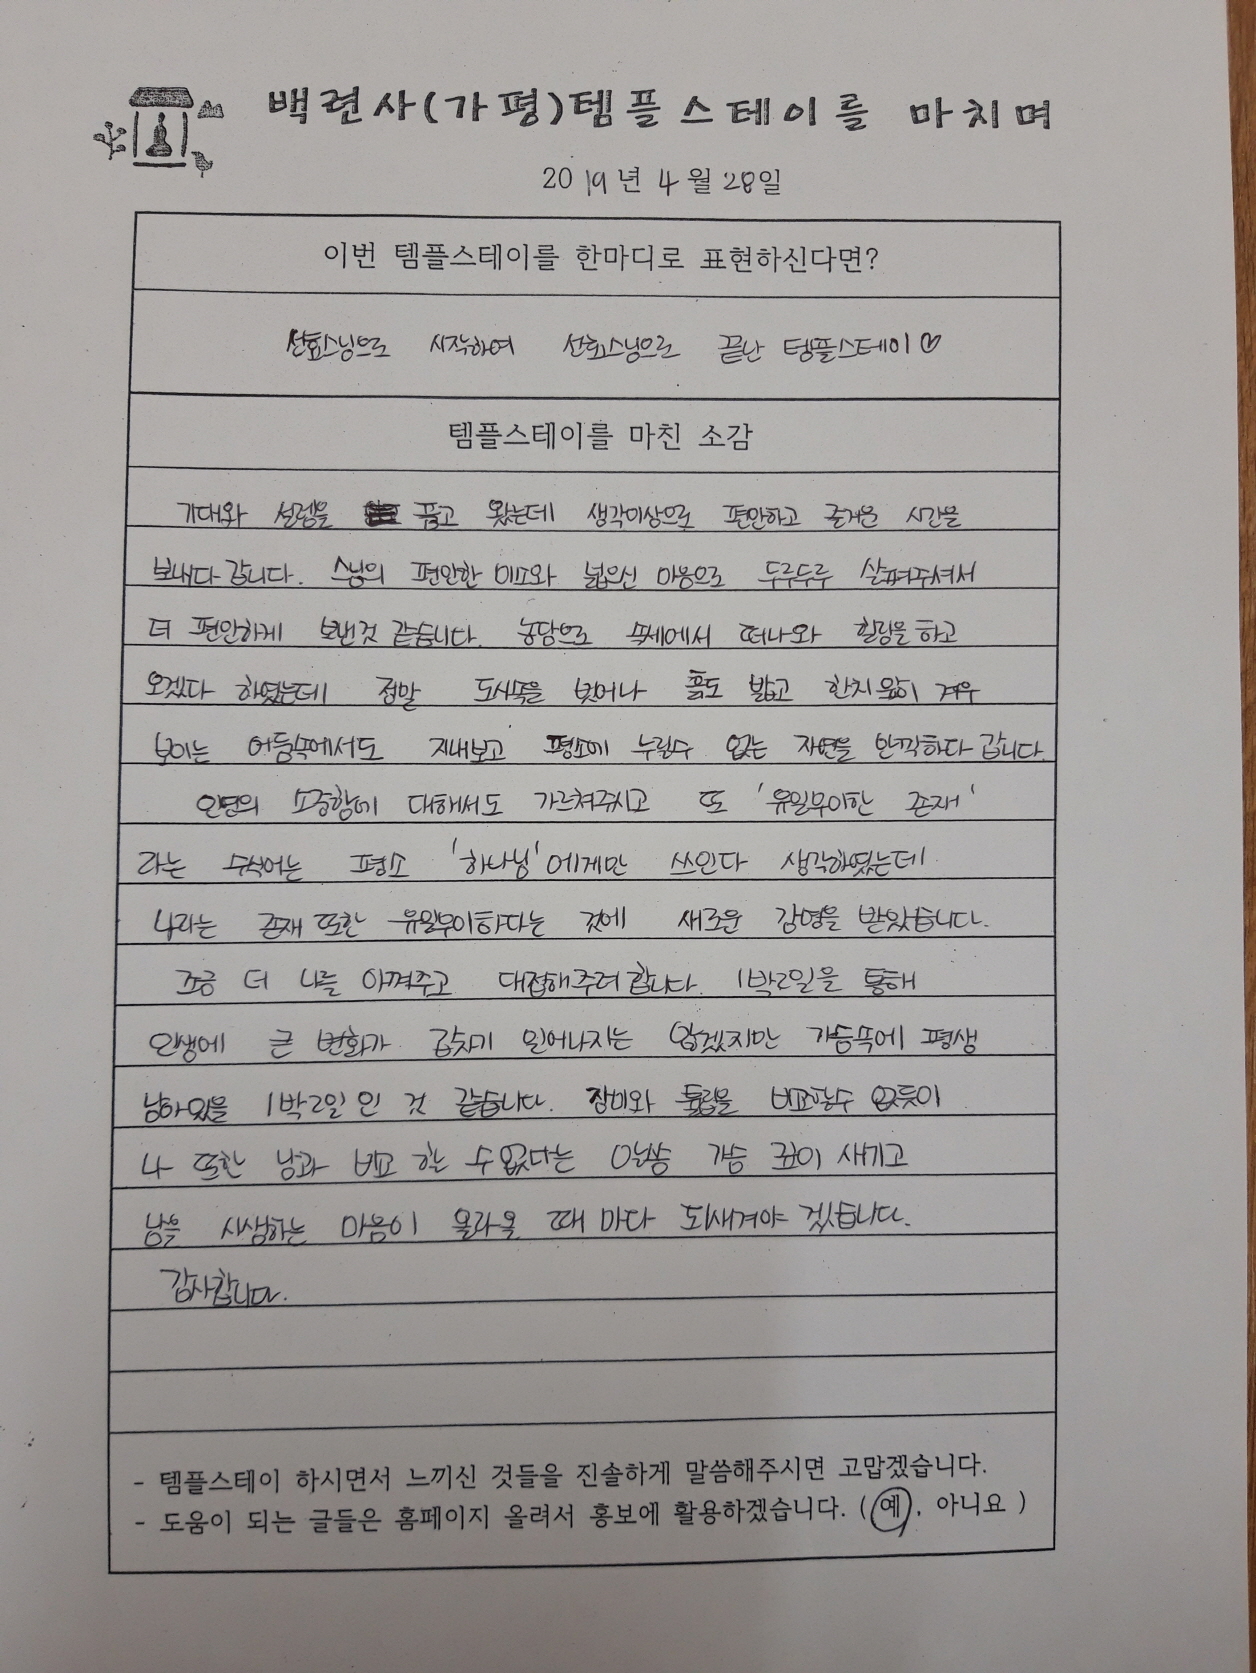 백련사(가평)템플스테이를 마치며
2019년 4월 28일
이번 템플스테이를 한마디로 표현하신다면?
선효스님으로 시작하여 선효스님으로 끝난 템플스테이♡
템플스테이를 마친 소감
기대와 설렘을 품고 왔는데 생각이상으로 편안하고 즐거운 시간을
보내다 갑니다. 스님의 편안한 미소와 넓으신 마음으로 두루두루 살펴주셔서
더 편안하게 보낸것 같습니다. 농담으로 속세에서 떠나와 힐링을 하고
오겠다 하였는데 정말 도시쪽을 벗어나 흙도 밟고 한치 앞이 겨우
보이는 어둠속에서도 지내보고 평소에 누릴수 없는 자연을 만끽하다 갑니다.
인연의 소중함에 대해서도 가르쳐주시고 또 '유일무이한 존재'
라는 수식어는 평소 '하나님'에게만 쓰인다 생각하였는데
나라는 존재 또한 유일무이하다는 것에 새로운 감명을 받았습니다.
조금 더 나를 아껴주고 대접해주려 합니다. 1박2일을 통해
인생에 큰 변화가 갑자기 일어나지는 않겠지만 가슴쪽에 평생
남아있을 1박2일 인 것 같습니다. 장미와 튤립을 비교할수 없듯이
나 또한 남과 비교 할 수 없다는 말씀 가슴 깊이 새기고
남을 시샘하는 마음이 올라올 때 마다 되새겨야 겠습니다.
감사합니다.
- 템플스테이 하시면서 느끼신 것들을 진솔하게 말씀해주시면 고맙겠습니다.
- 도움이 되는 글들은 홈페이지 올려서 홍보에 활용하겠습니다. ( 예 , 아니요 )